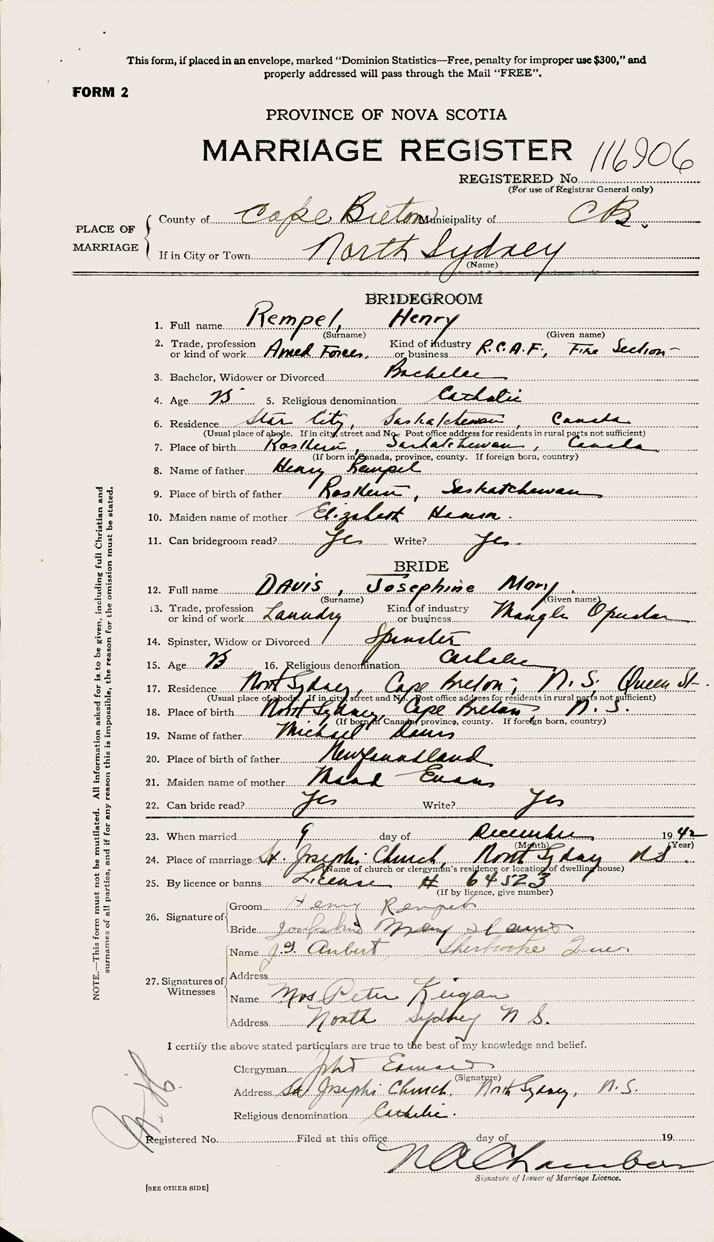 This form, if placed in an envelope, marked "Dominion Statistics—Free, penalty for improper use $300," and
properly addressed will pass through the Mail "FREE".
FORM 2
PROVINCE OF NOVA SCOTIA
MARRIAGE REGISTER 116906
REGISTERED No.
(For use of Registrar General only)
PLACE OF MARRIAGE
County of Cape Breton Municipality of C.B.
If in City or Town North Sydney
(Name)
BRIDEGROOM
1. Full name Rempel, Henry
(Surname) (Given name)
2. Trade, profession or kind of work Armed Forces, Kind of industry or business R.C.A.F., Fire Section
3. Bachelor, Widower or Divorced Bachelor
4. Age 23 5. Religious denomination Catholic
6. Residence Star City, Saskatchewan, Canada
(Usual place of abode. If in city, street and No. Post office address for residents in rural parts not sufficient)
7. Place of birth Rosthern, Saskatchewan, Canada
(If born in Canada, province, county. If foreign born, country)
8. Name of father Henry Rempel
9. Place of birth of father Rosthern, Saskatchewan
10. Maiden name of mother Elizabeth
11. Can bridegroom read? Yes Write? Yes
BRIDE
12. Full name DAVIS, Josephine Mary
(Surname) (Given name)
13. Trade, profession or kind of work Laundry Kind of industry or business Mangle Operator
14. Spinster, Widow or Divorced Spinster
15. Age 23 16. Religious denomination Catholic
17. Residence North Sydney, Cape Breton, N.S. Queen St.
(Usual place of abode. If in city, street and No. Post office address for residents in rural parts not sufficient)
18. Place of birth North Sydney, Cape Breton, N.S.
(If born in Canada province, county. If foreign born, country)
19. Name of father Michael Davis
20. Place of birth of father Newfoundland
21. Maiden name of mother Maud Evans
22. Can bride read? Yes Write? Yes
23. When married 9 day of December 1942
(Month) (Year)
24. Place of marriage St. Joseph's Church, North Sydney NS.
(Name of church or clergyman's residence or location of dwelling house)
25. By licence or banns License # 64523
(If by licence, give number)
26. Signature of
Groom Henry Rempel
Bride Josephine Mary Davis
27. Signatures of Witnesses
Name J. Aubert, Sherbrooke Que.
Address
Name Mrs Peter Keigan
Address North Sydney N S.
I certify the above stated particulars are true to the best of my knowledge and belief.
Clergyman
(Signature)
Address St Joseph's Church, North Sydney, N.S.
Religious denomination Catholic.
Registered No. Filed at this office day of 19
N A Chambers
Signature of Issuer of Marriage Licence.
[SEE OTHER SIDE]
NOTE.—This form must not be mutilated. All information asked for is to be given, including full Christian and
surnames of all parties, and if for any reason this is impossible, the reason for the omission must be stated.